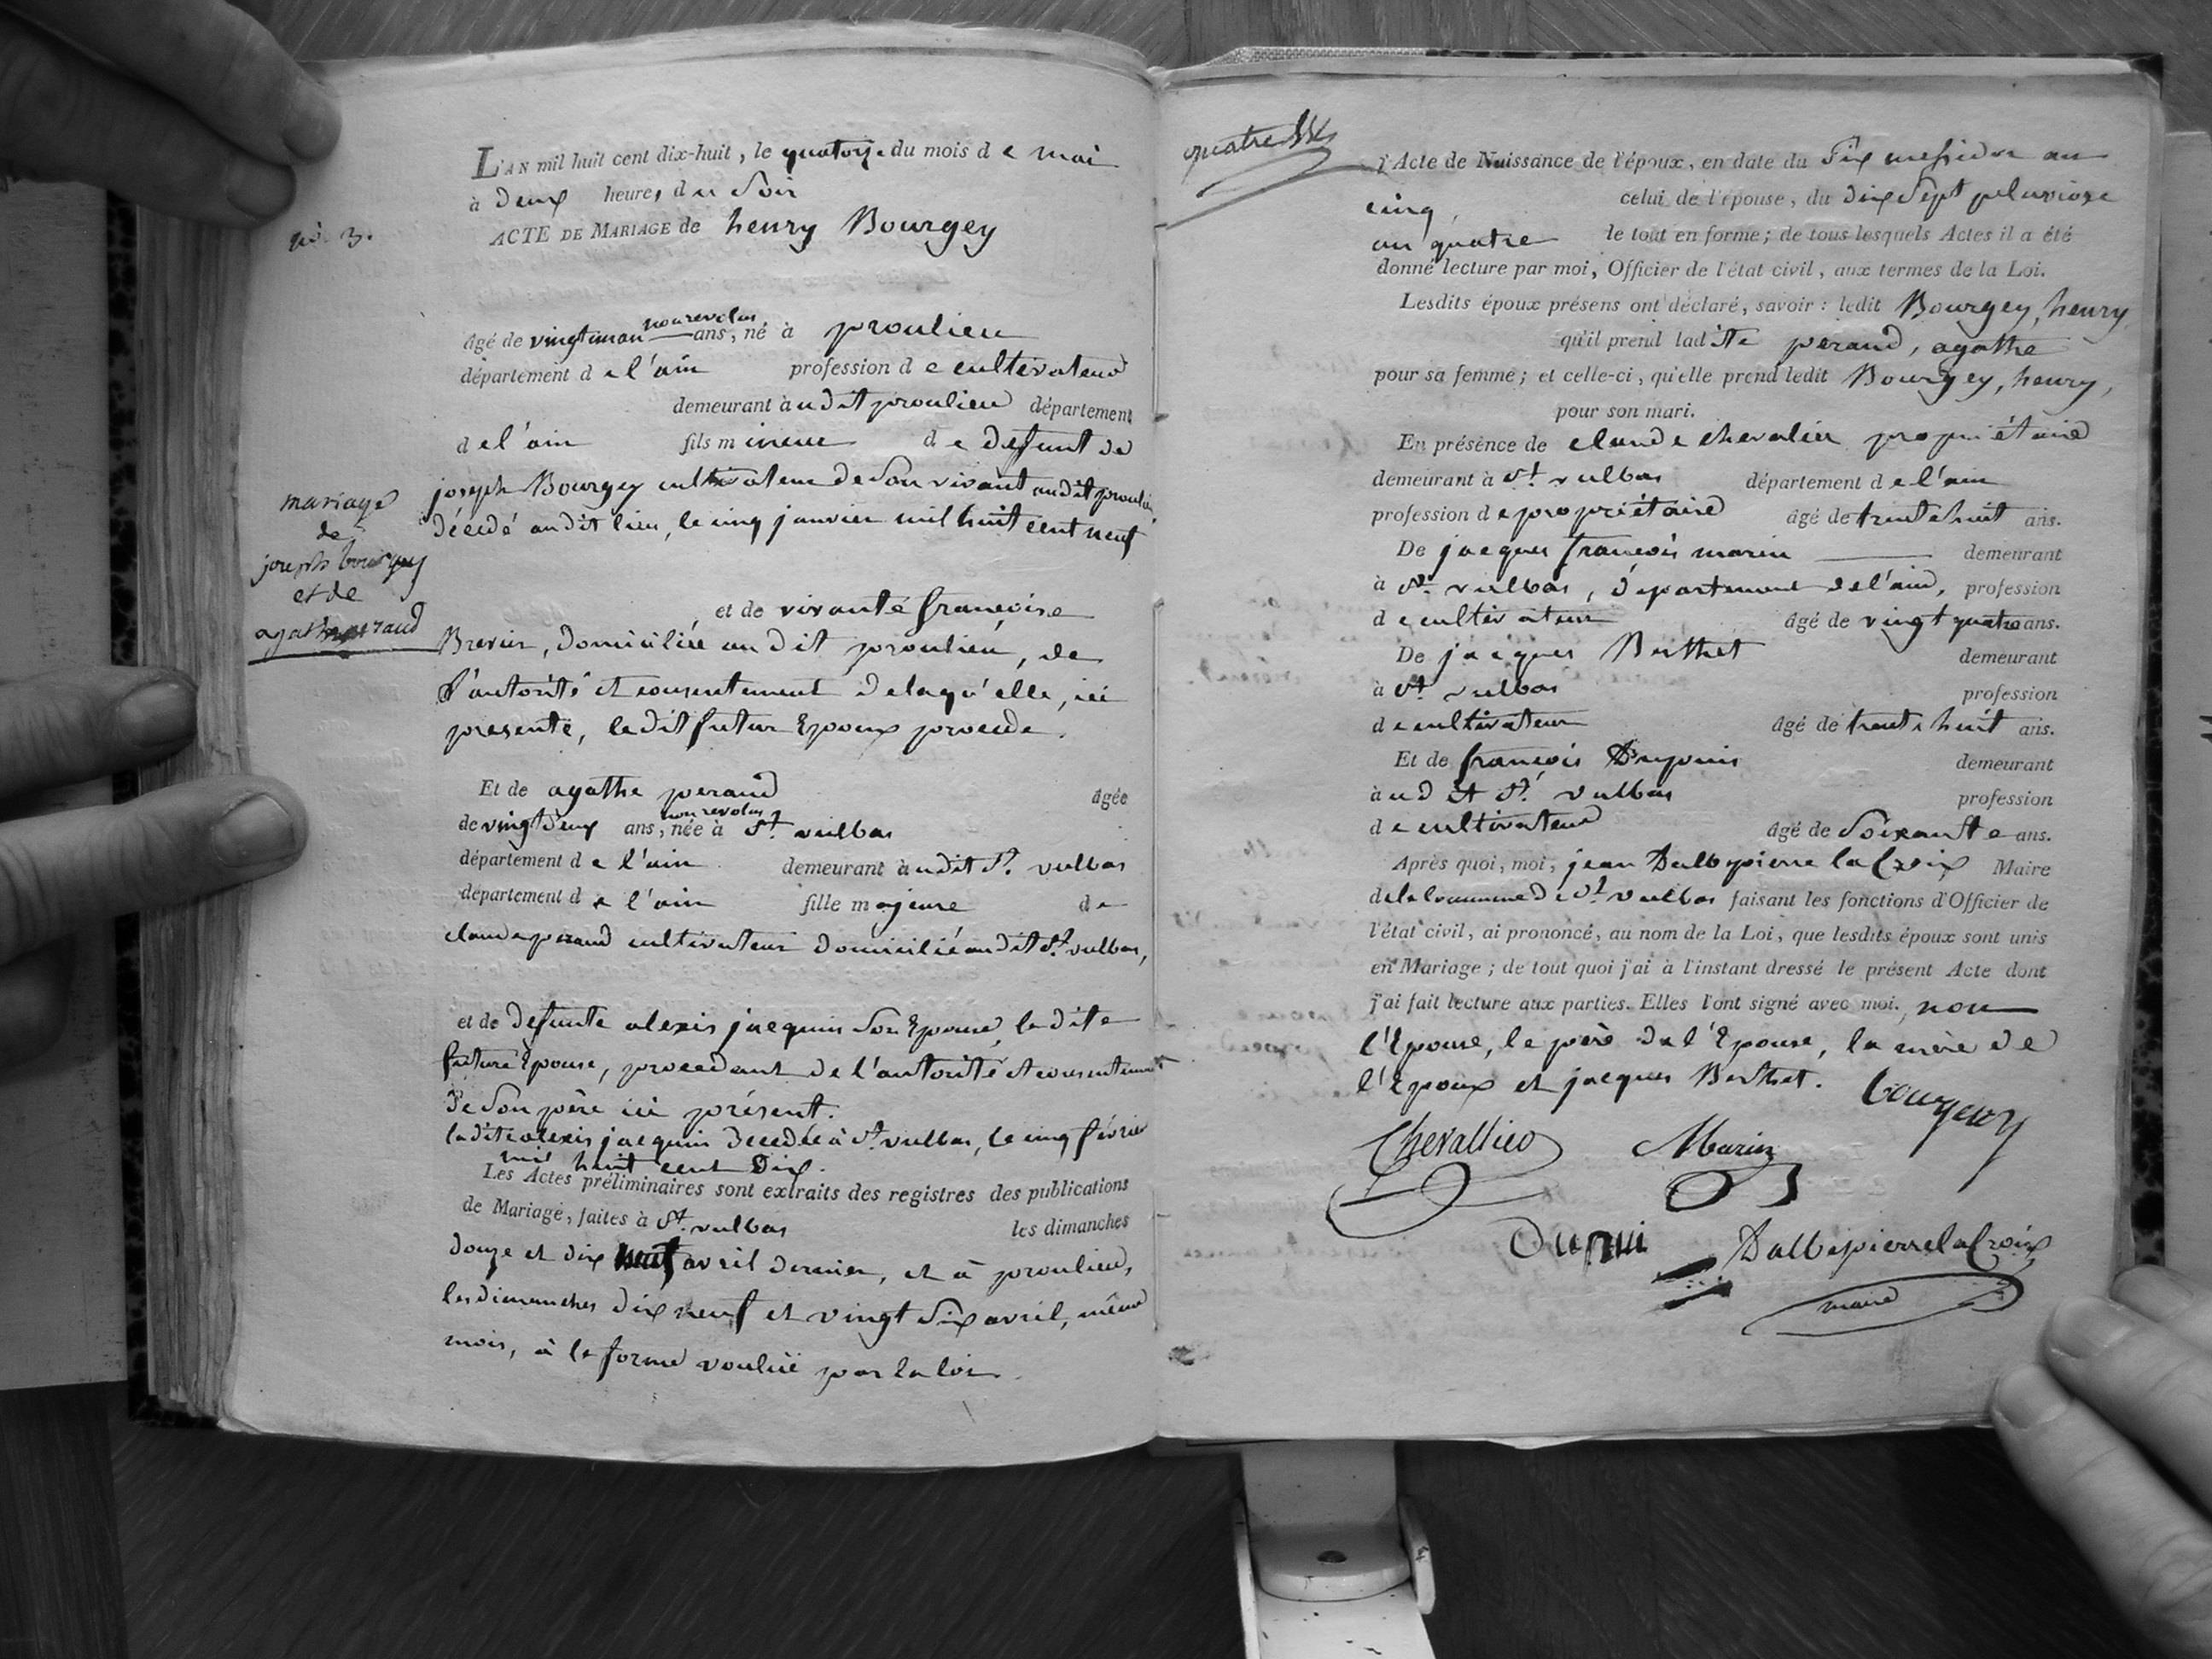 L'AN mil huit cent dix-huit, le quatorze du mois d e mai
à deux heures, du Soir
ACTE DE MARIAGE de henry Bourgey
no. 3.
âgé de vingtunan non revolus ans, né à proulieu
département d e l'ain profession d e cultivateur
demeurant à udit proulieu département
d e l'ain fils m ineur d e defunt de
joseph Bourgey cultivateur de Son vivant audit proulieu
décédé audit lieu, le cinq janvier mil huit cent neuf
mariage
de
joseph bourgey
et de
agathe peraud
et de vivante françoise
Brevier, domiciliée audit proulieu, de
l'autorité et consentement de laqu'elle, ici
presente, ledit futur Epoux procede.
Et de agathe peraud âgée
de vingtdeux ans, non revolus née à St. vulbas
département d e l'ain demeurant à udit St. vulbas
département d e l'ain fille m ajeure d e
claude peraud cultivateur domicilié audit St. vulbas,
et de defunte alexis jacquin Son Epouse, ladite
future Epouse, procedant de l'autorité et consentement
de Son père ici présent.
ladite alexis jacquin decedée à St. vulbas, le cinq février
mil huit cent Dix.
Les Actes préliminaires sont extraits des registres des publications
de Mariage, faites à St. vulbas les dimanches
douze et dix neuf avril dernier, et à proulieu,
les dimanches dix neuf et vingt Six avril, même
mois, à la forme voulüe par la loi.
quatre
l'Acte de Naissance de l'époux, en date du Six messidor an
cinq, celui de l'épouse, du dix Sept pluviose
an quatre le tout en forme; de tous lesquels Actes il a été
donné lecture par moi, Officier de l'état civil, aux termes de la Loi.
Lesdits époux présens ont déclaré, savoir: ledit Bourgey, henry
qu'il prend lad ite peraud, agathe
pour sa femme; et celle-ci, qu'elle prend ledit Bourgey, henry,
pour son mari.
En présence de claude chevalier propriétaire
demeurant à St. vulbas département d e l'ain
profession d e propriétaire âgé de trente huit ans.
De jacques françois marin demeurant
à St. vulbas, département de l'ain, profession
d e cultivateur âgé de vingt quatre ans.
De jacques Berthet demeurant
à St. vulbas profession
d e cultivateur âgé de trente huit ans.
Et de françois Dupuis demeurant
à ud it St. vulbas profession
d e cultivateur âgé de Soixante ans.
Après quoi, moi, jean Dalbepierre la Croix Maire
de la Commune de St. vulbas faisant les fonctions d'Officier de
l'état civil, ai prononcé, au nom de la Loi, que lesdits époux sont unis
en Mariage; de tout quoi j'ai à l'instant dressé le présent Acte dont
j'ai fait lecture aux parties. Elles l'ont signé avec moi, non
l'Epouse, le père de l'Epouse, la mère de
l'Epoux et jacques Berthet. bourgeey
Chevallier Marin
Dupui Dalbepierrelacroix
maire